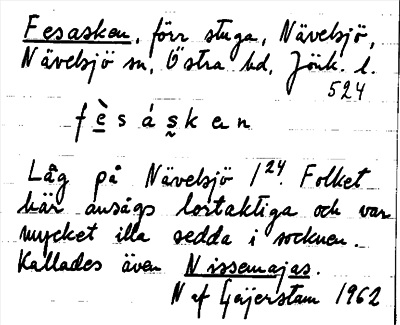 Fesasken, förr stuga, Nävelsjö,
Nävelsjö sn, Östra hd, Jönk. l.
524
f è s á s k e n
Låg på Nävelsjö 1 24. Folket
här ansågs lortaktiga och var
mycket illa sedda i socknen.
Kallades även Nissemajas.
N af Geijerstam 1962